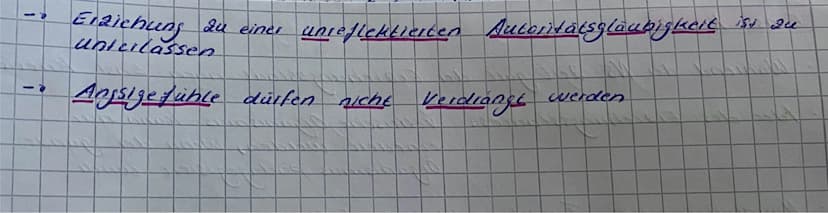 → Erziehung zu einer unreflektierten Autoritätsgläubigkeit ist zu
unterlassen
→ Angstgefühle dürfen nicht verdrängt werden